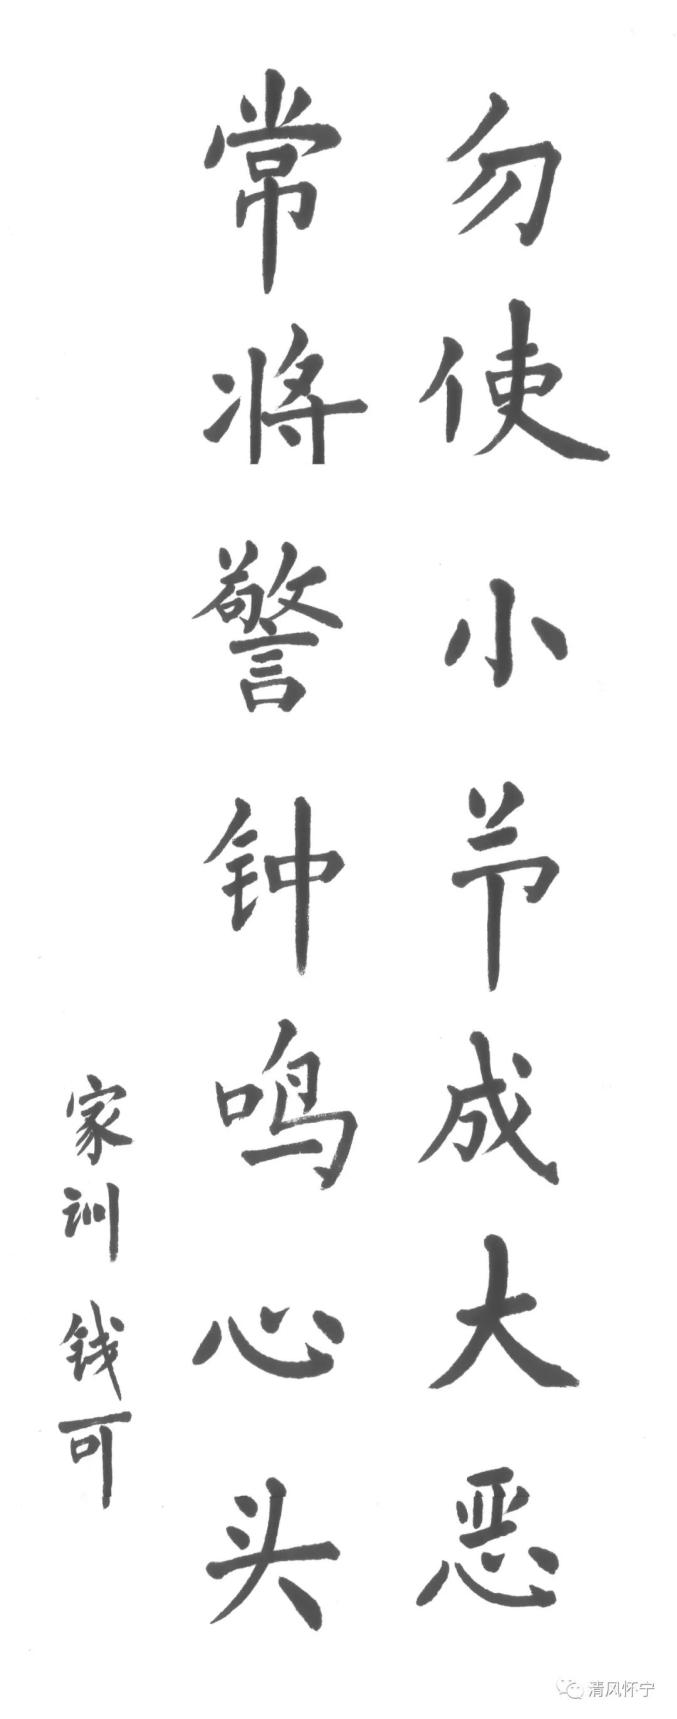 勿使小节成大恶
常将警钟鸣心头
家训 钱可
清风怀宁